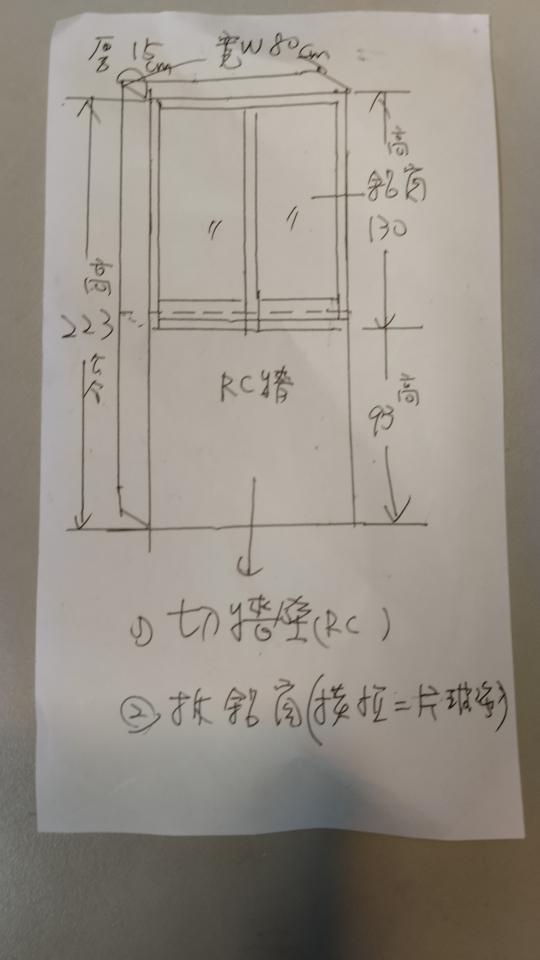 厚15cm
寬W80cm
高
鋁窗
130
高
223
公分
RC牆
高
93
1) 切牆壁(RC)
② 拆鋁窗(橫拉=片玻璃)